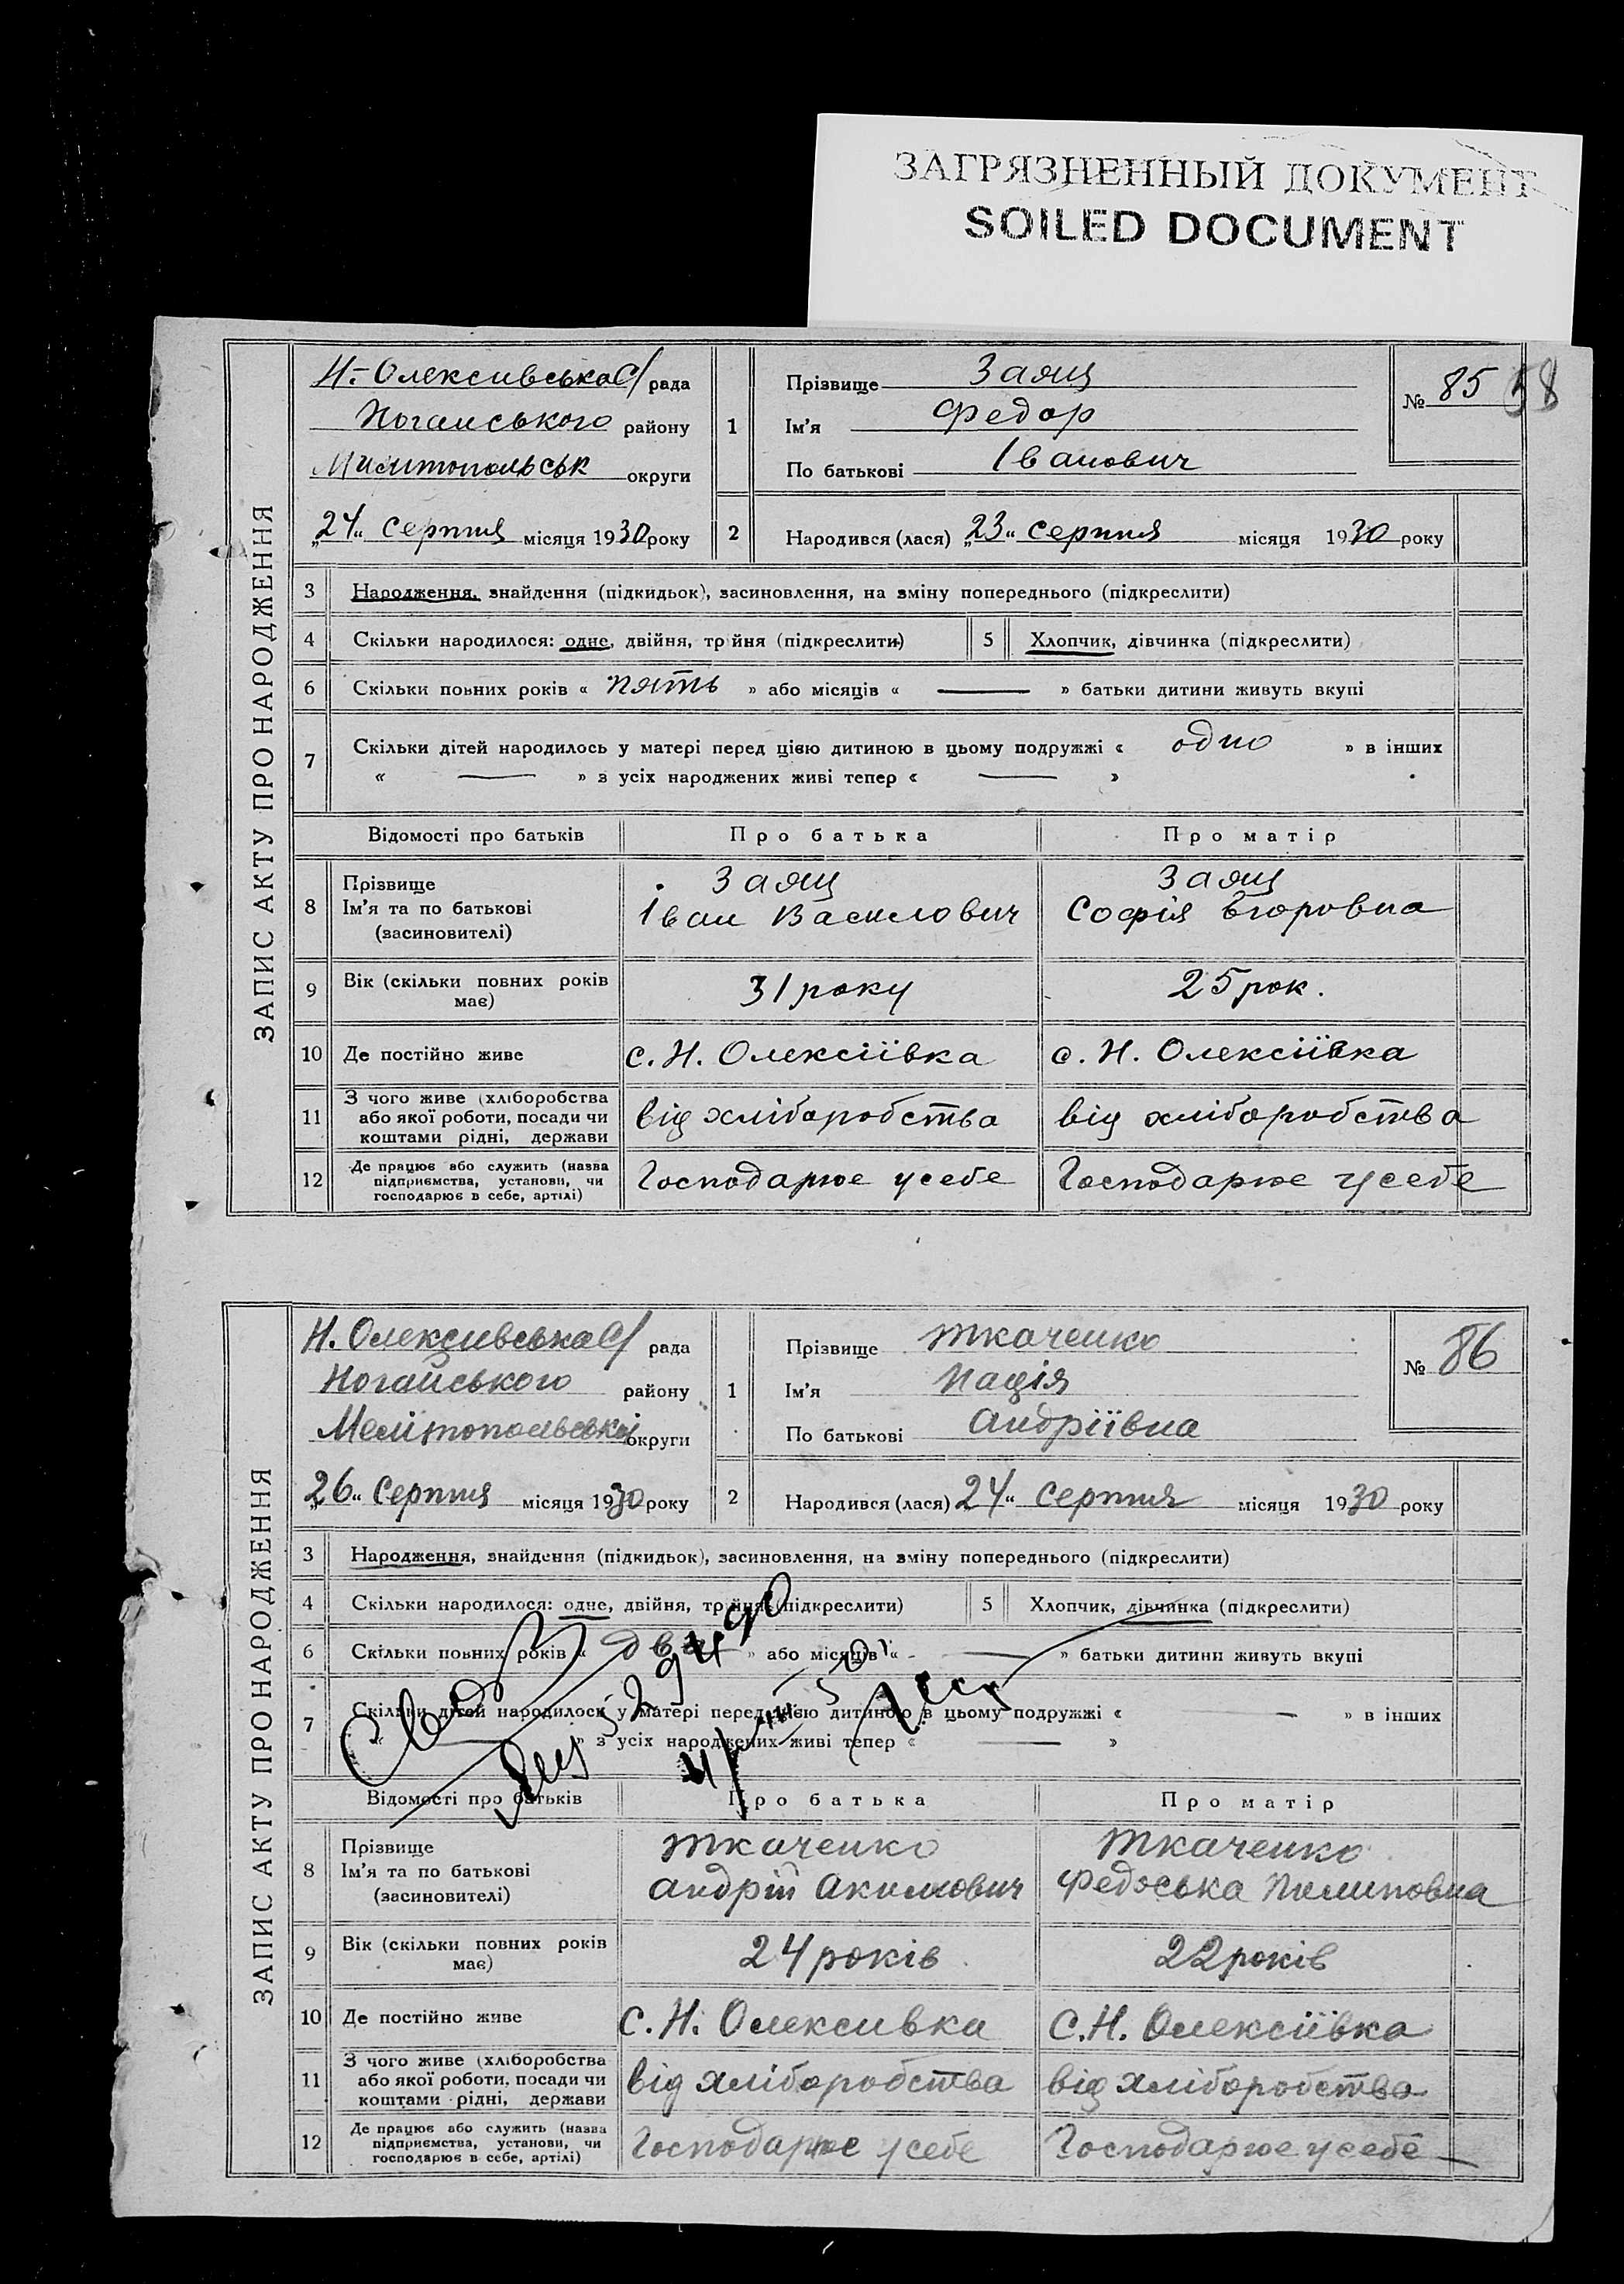 ЗАГРЯЗНЕННЫЙ ДОКУМЕНТ
SOILED DOCUMENT
ЗАПИС АКТУ ПРО НАРОДЖЕННЯ
Н.-Олексивська С/ рада
Ногайського району
Милитопольськ округи
„24“ серпня місяця 1930 року
1
Прізвище Заяц
Ім'я Федор
По батькові Іванович
№ 85
58
2 Народився (лася) „23“ серпня місяця 1930 року
3 Народження, знайдення (підкидьок), засиновлення, на зміну попереднього (підкреслити)
4 Скільки народилося: одне, двійня, трійня (підкреслити) 5 Хлопчик, дівчинка (підкреслити)
6 Скільки повних років « пять » або місяців « — » батьки дитини живуть вкупі
7 Скільки дітей народилось у матері перед цією дитиною в цьому подружжі « одно » в інших
« — » з усіх народжених живі тепер « — »
Відомості про батьків Про батька Про матір
8 Прізвище Заяц Заяц
Ім'я та по батькові Іван Василович Софія Егоровна
(засиновителі)
9 Вік (скільки повних років має) 31 року 25 рок.
10 Де постійно живе с. Н. Олексіївка с. Н. Олексіївка
11 З чого живе (хліборобства
або якої роботи, посади чи від хліборобства від хліборобства
коштами рідні, держави
12 Де працює або служить (назва
підприємства, установи, чи Господарює у себе Господарює у себе
господарює в себе, артілі)
ЗАПИС АКТУ ПРО НАРОДЖЕННЯ
Н. Олексивська С/ рада
Ногайського району
Мелітопольської округи
„26“ Серпня місяця 1930 року
1
Прізвище Ткаченко
Ім'я Надія
По батькові Андріївна
№ 86
2 Народився (лася) 24“ Серпня місяця 1930 року
3 Народження, знайдення (підкидьок), засиновлення, на зміну попереднього (підкреслити)
4 Скільки народилося: одне, двійня, трійня (підкреслити) 5 Хлопчик, дівчинка (підкреслити)
6 Скільки повних років « два » або місяців « — » батьки дитини живуть вкупі
7 Скільки дітей народилось у матері перед цією дитиною в цьому подружжі « — » в інших
« — » з усіх народжених живі тепер « — »
Відомості про батьків Про батька Про матір
8 Прізвище Ткаченко Ткаченко
Ім'я та по батькові Андрій Акимович Федоська Пилиповна
(засиновителі)
9 Вік (скільки повних років має) 24 років 22 років
10 Де постійно живе С. Н. Олексивка С. Н. Олексіївка
11 З чого живе (хліборобства
або якої роботи, посади чи від хліборобства від хліборобства
коштами рідні, держави
12 Де працює або служить (назва
підприємства, установи, чи Господарює у себе Господарює у себе
господарює в себе, артілі)